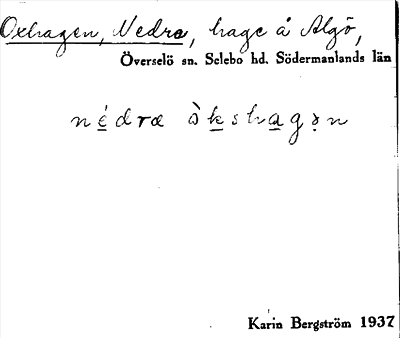 Oxhagen, Nedre, hage å Algö,
Överselö sn. Selebo hd. Södermanlands län
nédræ òkshagən
Karin Bergström 1937